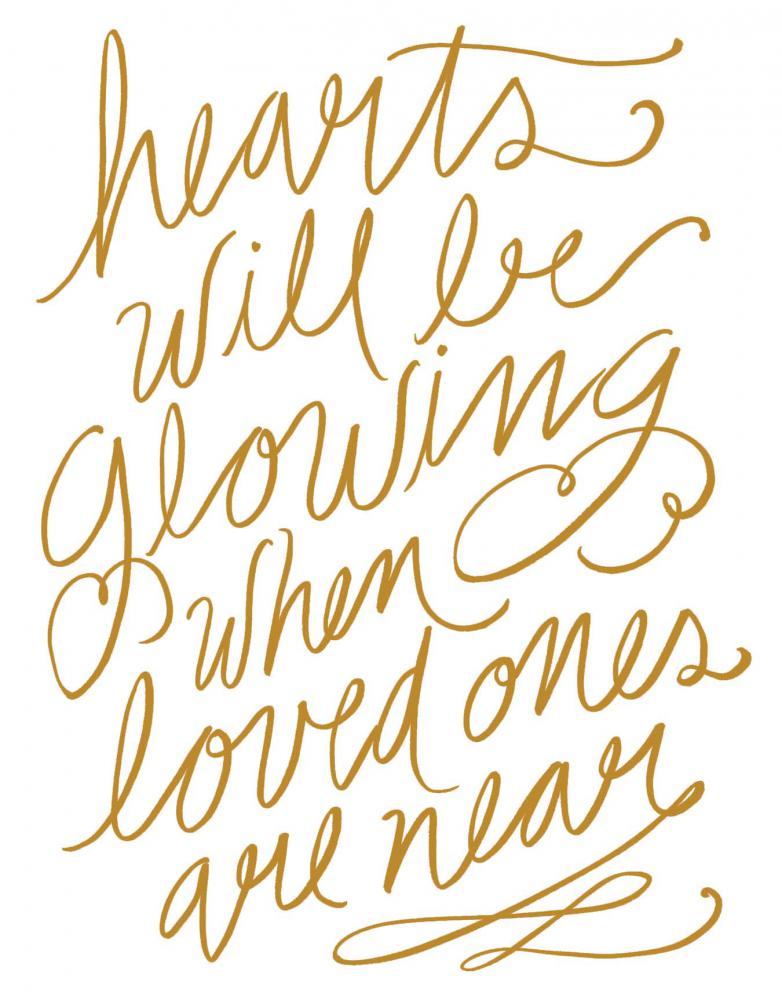 hearts
will be
glowing
when
loved ones
are near